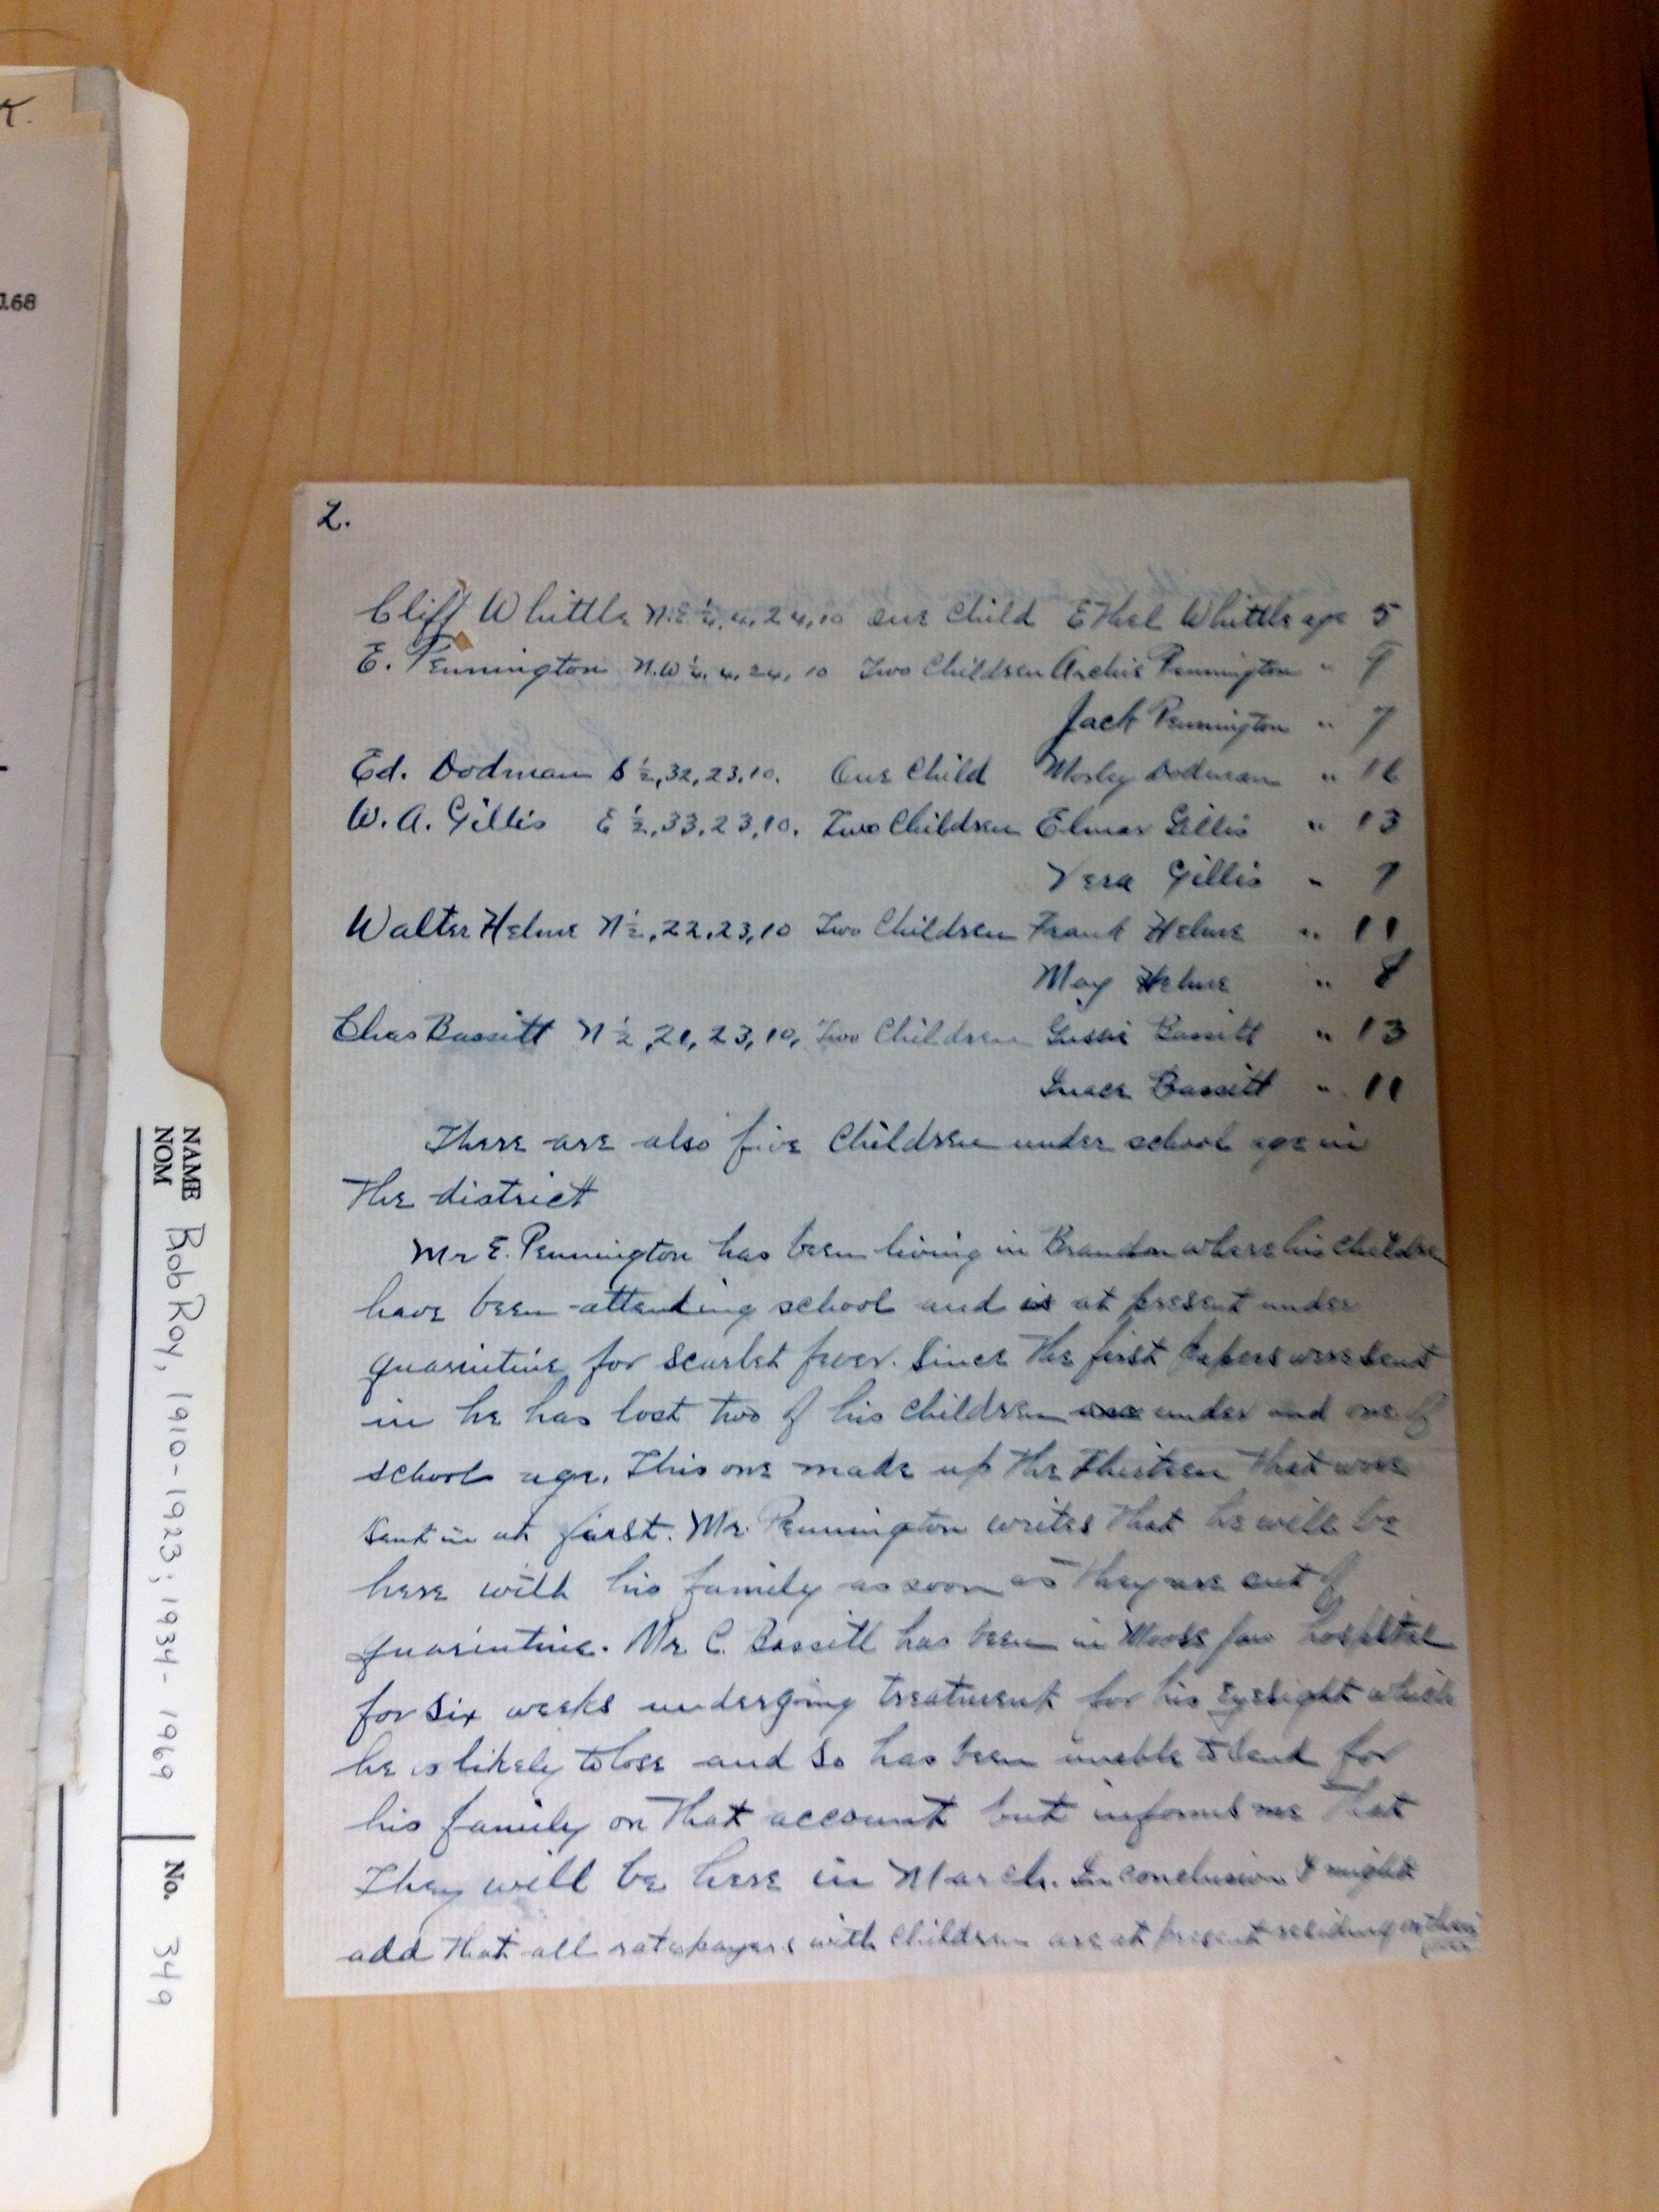 K.
168
2.
Cliff Whittle N.E ¼, 4, 24, 10 One Child Ethel Whittle age 5
E. Pennington N.W ¼, 4, 24, 10 Two Children Archie Pennington " 9
Jack Pennington " 7
Ed. Dodman S ½, 32, 23, 10. One Child Mosley Dodman " 16
W. A. Gillis E ½, 33, 23, 10. Two Children Elmer Gillis " 13
Vera Gillis " 7
Walter Helme N ½, 22, 23, 10 Two Children Frank Helme " 11
May Helme " 8
Chas Bassitt N ½, 21, 23, 10, Two Children Gussie Bassitt " 13
Bassitt " 11
There are also five Children under school age in
the district
Mr E. Pennington has been living in Brandon where his children
have been attending school and is at present under
quarintine for scarlet fever. Since the first papers were sent
in he has lost two of his children one under and one of
school age. This one made up the thirteen that were
sent in at first. Mr. Pennington writes that he will be
here with his family as soon as they are out of
quarintine. Mr. C. Bassitt has been in Moose Jaw hospital
for six weeks undergoing treatment for his eyesight which
he is likely to lose and so has been unable to send for
his family on that account but informs me that
They will be here in March. In conclusion I might
add that all ratepayers with children are at present residing on their
NAME
NOM
Bob Roy, 1910-1923; 1934-1969
No. 349